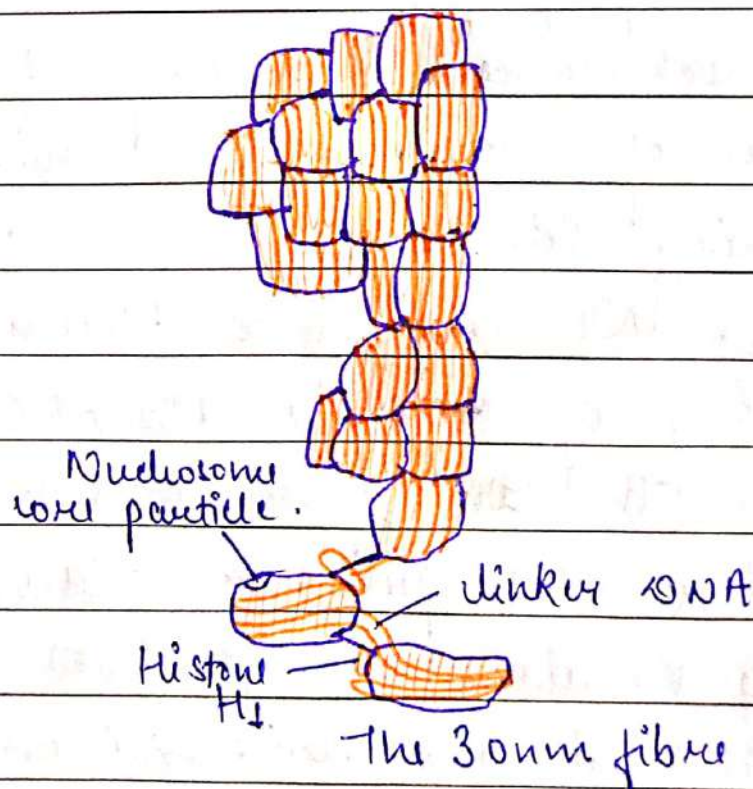 Nucleosome
core particle.
linker DNA
Histone
H1
The 30nm fibre